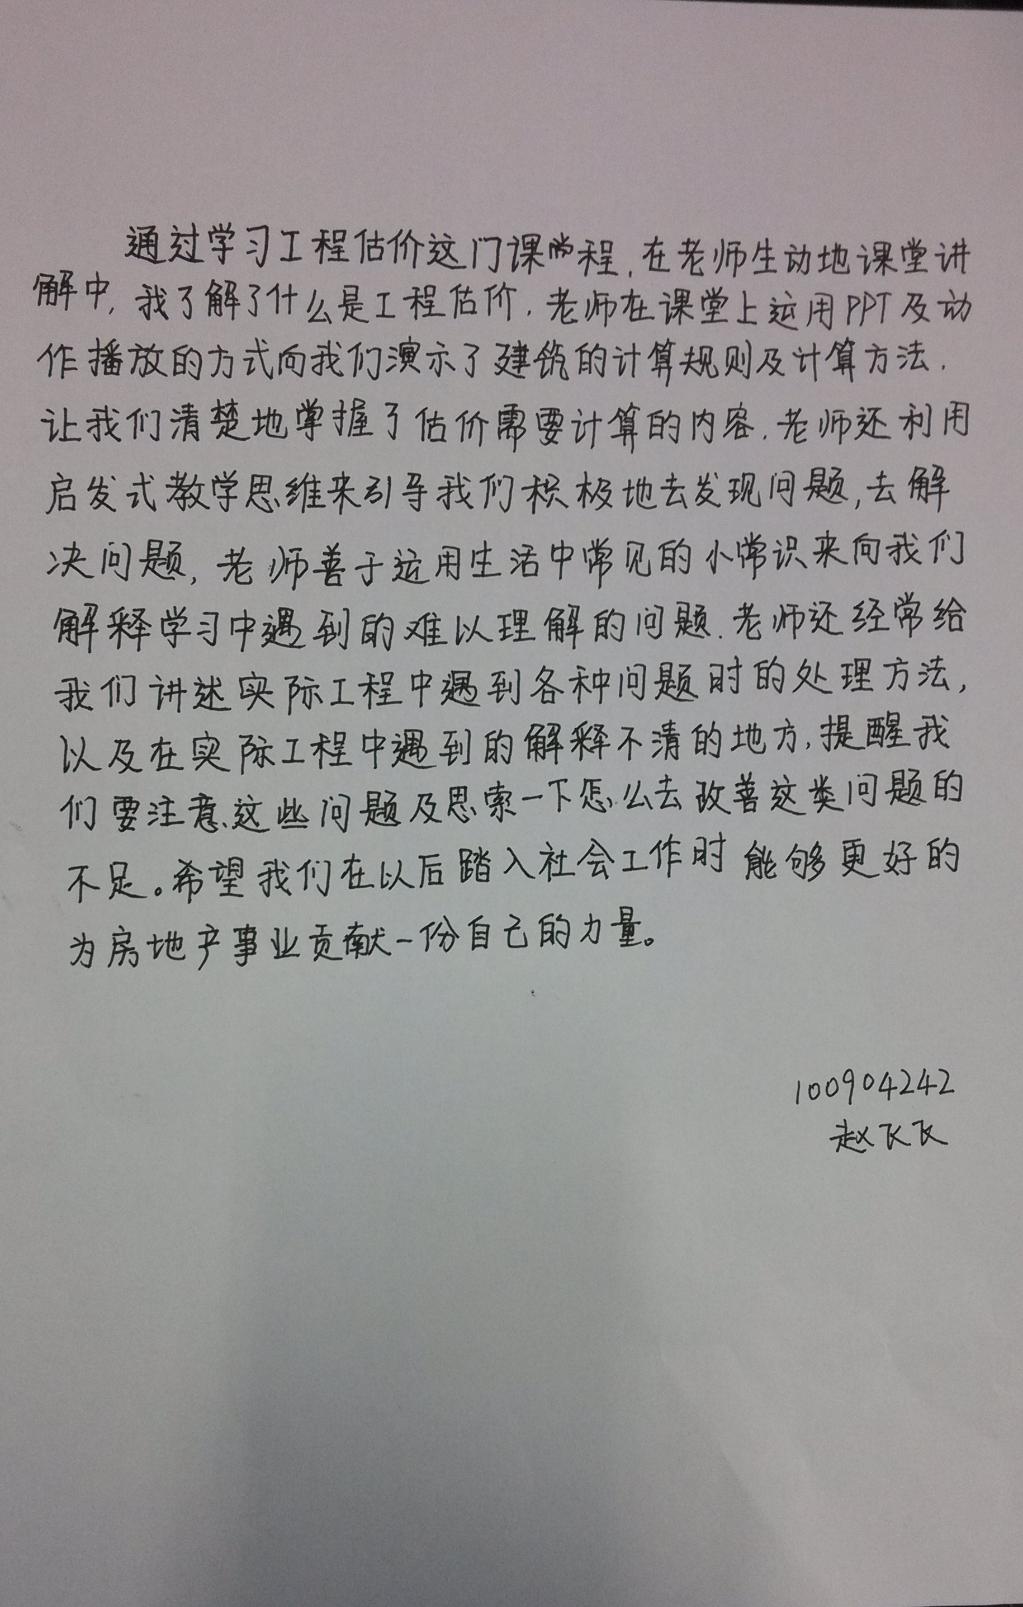 通过学习工程估价这门课程,在老师生动地课堂讲
解中,我了解了什么是工程估价.老师在课堂上运用PPT及动
作播放的方式向我们演示了建筑的计算规则及计算方法.
让我们清楚地掌握了估价需要计算的内容.老师还利用
启发式教学思维来引导我们积极地去发现问题,去解
决问题,老师善于运用生活中常见的小常识来向我们
解释学习中遇到的难以理解的问题.老师还经常给
我们讲述实际工程中遇到各种问题时的处理方法,
以及在实际工程中遇到的解释不清的地方,提醒我
们要注意这些问题及思索一下怎么去改善这类问题的
不足。希望我们在以后踏入社会工作时能够更好的
为房地产事业贡献一份自己的力量。
100904242
赵飞飞